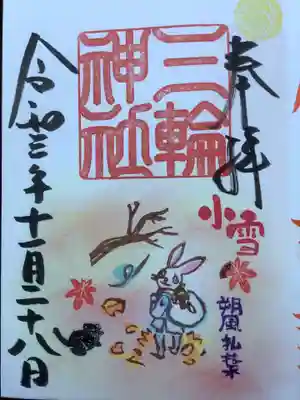 奉拝
小雪
朔風払葉
三輪
神社
令和三年十一月二十八日